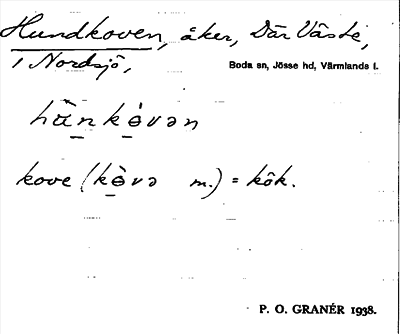 Hundkoven, åker, Där Väste,
i Nordsjö,
Boda sn, Jösse hd, Värmlands l.
hа̀n kɵ̀vən
kove (kɵ̀və m.) = kök.
P. O. GRANÉR 1938.